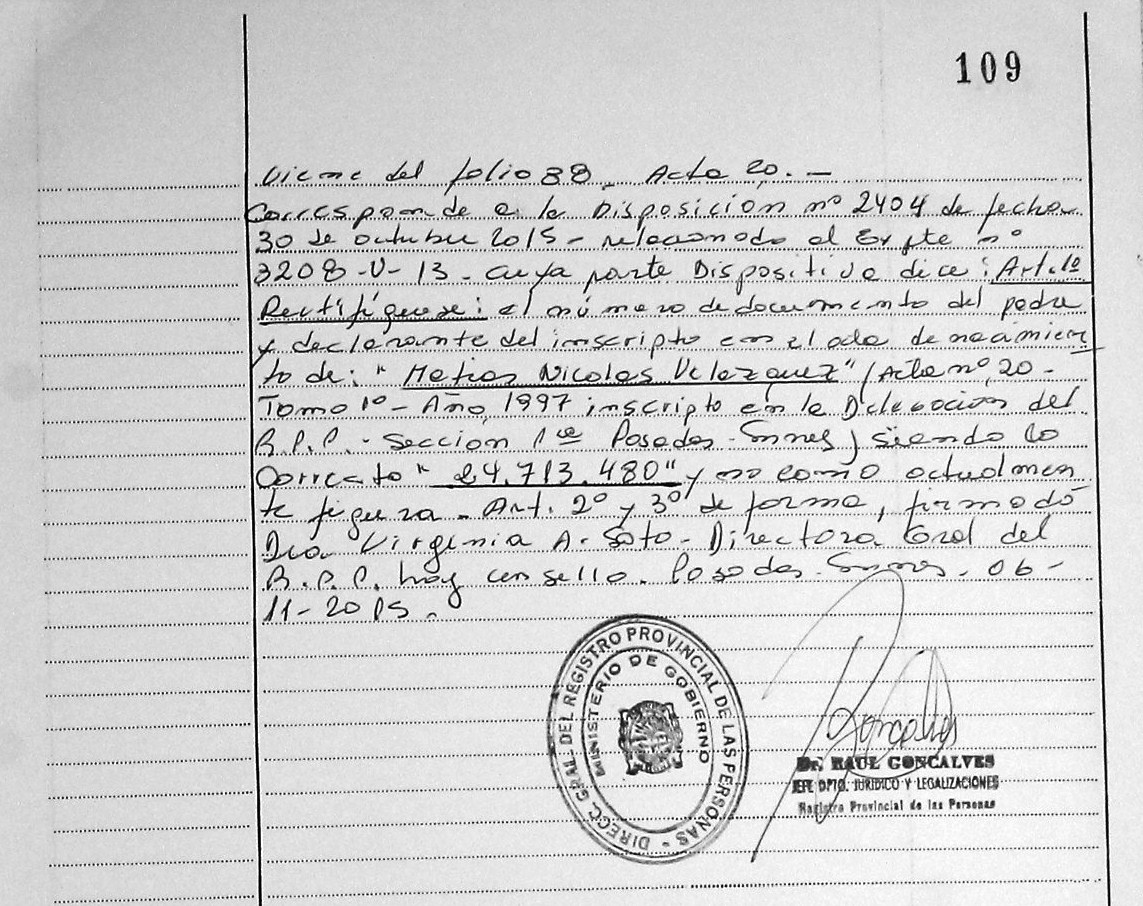 109
Viene del folio 88 - Acta 20. -
Corresponde a la Disposición nº 2404 de fecha
30 de octubre 2015 - relacionado al Expte nº
3208-V-13 - cuya parte Dispositiva dice: Art. 1º
Rectifíquese: el número de documento del padre
y declarante del inscripto en el acta de nacimien
to de: "Matias Nicolas Velazquez" (Acta nº 20 -
Tomo 1º - Año 1997 inscripto en la Delegación del
R.P.P. - Sección 1ra Posadas - Snnes) siendo lo
Correcto "24.713.480" y no como actualmen
te figura - Art. 2º y 3º de forma, firmado
Dra. Virginia A. Soto - Directora Gral del
R.P.P. hay un sello. Posadas - Snnes - 06 -
11 - 2015 -
DIRECC. GRAL. DEL REGISTRO PROVINCIAL DE LAS PERSONAS -
MINISTERIO DE GOBIERNO
Goncalves
Dr. RAUL GONCALVES
JEFE DPTO. JURIDICO Y LEGALIZACIONES
Registro Provincial de las Personas